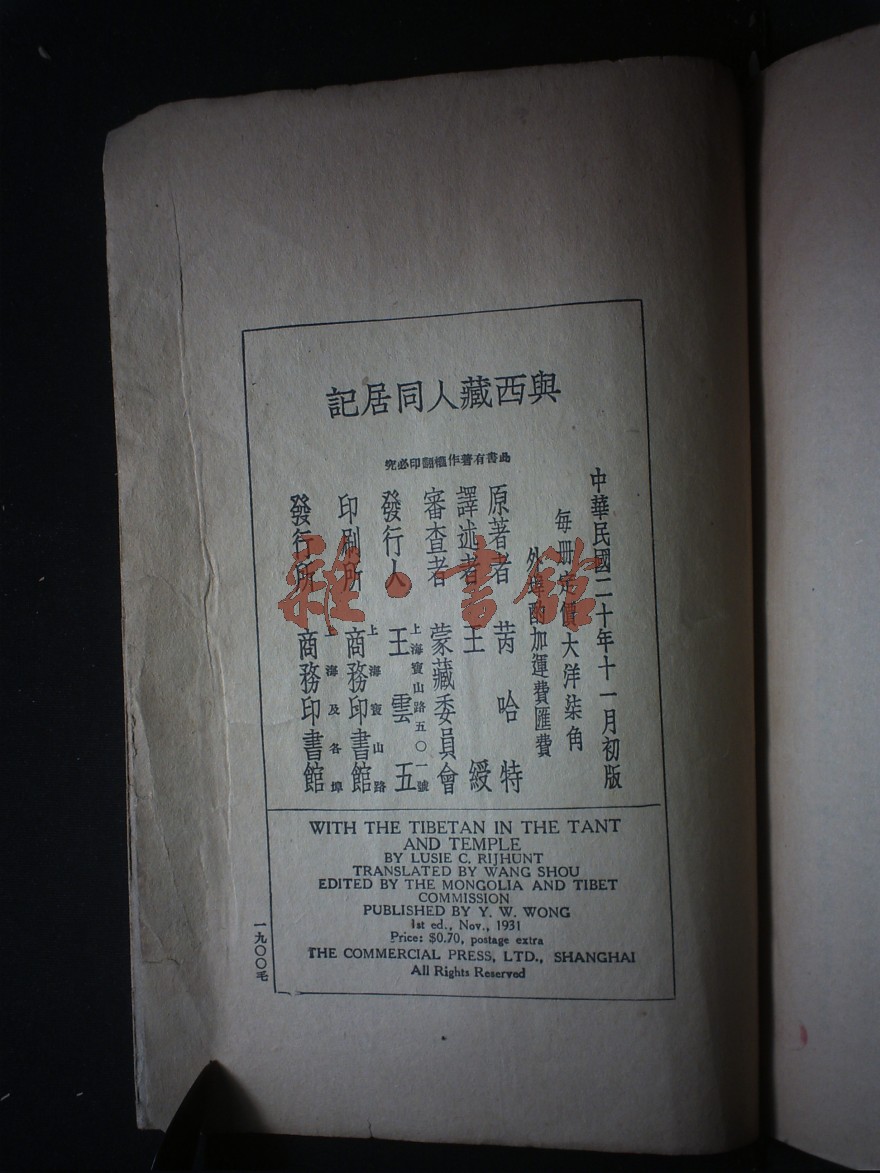 與西藏人同居記
此書有著作權翻印必究
中華民國二十年十一月初版
每册定價大洋柒角
外埠酌加運費匯費
原著者 芮哈特
譯述者 王綬
審查者 蒙藏委員會
上海寶山路五〇一號
發行人 王雲五
上海寶山路
印刷所 商務印書館
上海及各埠
發行所 商務印書館
WITH THE TIBETAN IN THE TANT
AND TEMPLE
BY LUSIE C. RIJHUNT
TRANSLATED BY WANG SHOU
EDITED BY THE MONGOLIA AND TIBET
COMMISSION
PUBLISHED BY Y. W. WONG
1st ed., Nov., 1931
Price: $0.70, postage extra
THE COMMERCIAL PRESS, LTD., SHANGHAI
All Rights Reserved
一九〇〇毛
雜·書館